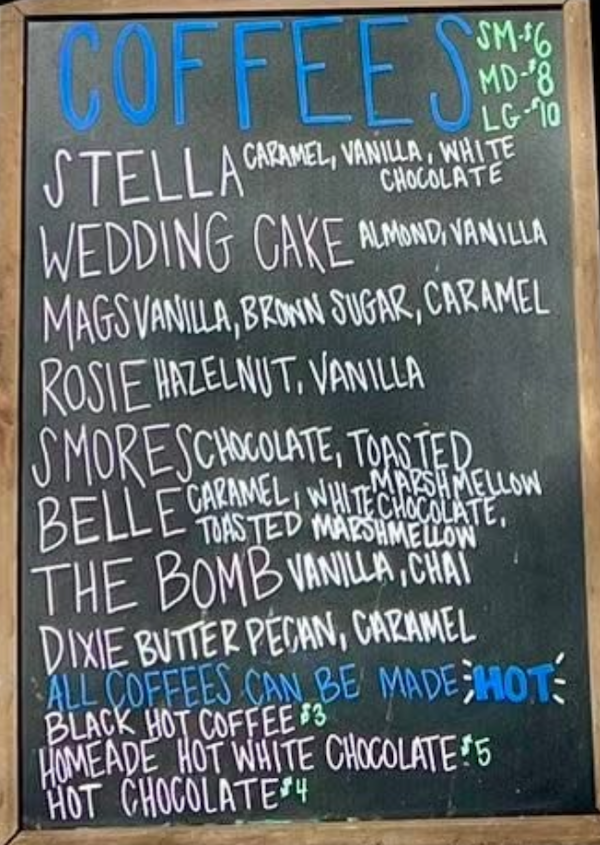 COFFEES
SM-$6
MD-$8
LG-$10
STELLA CARAMEL, VANILLA, WHITE
CHOCOLATE
WEDDING CAKE ALMOND, VANILLA
MAGS VANILLA, BROWN SUGAR, CARAMEL
ROSIE HAZELNUT, VANILLA
SMORES CHOCOLATE, TOASTED
MARSHMELLOW
BELLE CARAMEL, WHITE CHOCOLATE,
TOASTED MARSHMELLOW
THE BOMB VANILLA, CHAI
DIXIE BUTTER PECAN, CARAMEL
ALL COFFEES CAN BE MADE HOT
BLACK HOT COFFEE $3
HOMEADE HOT WHITE CHOCOLATE $5
HOT CHOCOLATE $4